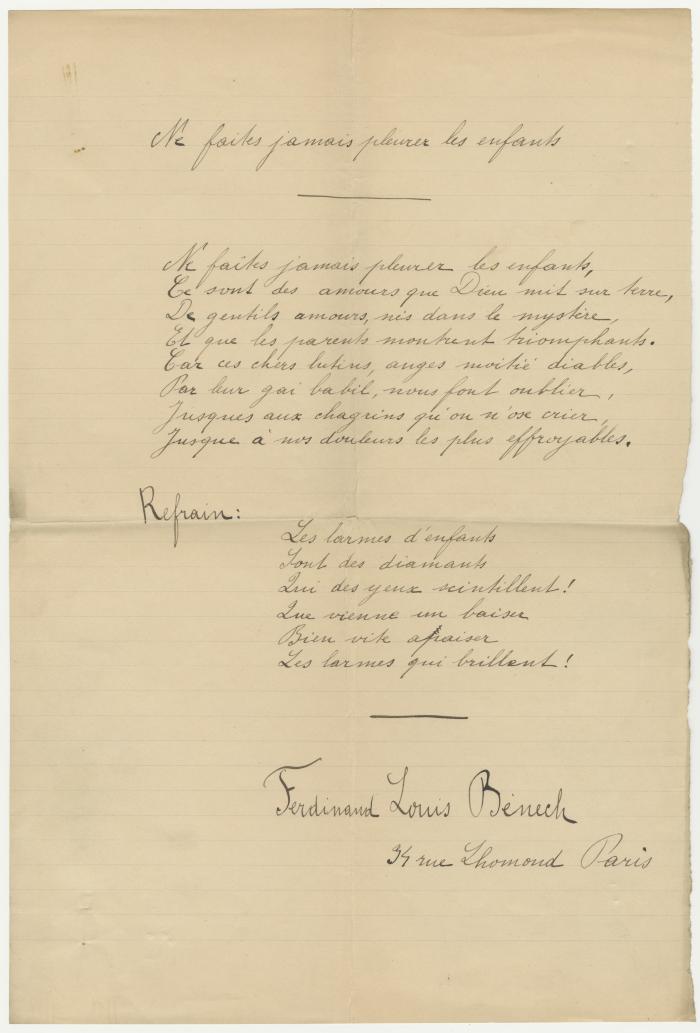 Ne faites jamais pleurer les enfants
Ne faites jamais pleurer les enfants,
Ce sont des amours que Dieu mit sur terre,
De gentils amours, nés dans le mystère,
Et que les parents montrent triomphants.
Car ces chers lutins, anges moitié diables,
Par leur gai babil, nous font oublier,
Jusques aux chagrins qu'on n'ose crier,
Jusque à nos douleurs les plus effroyables.
Refrain:
Les larmes d'enfants
Sont des diamants
Qui des yeux scintillent!
Que vienne un baiser
Bien vite apaiser
Les larmes qui brillent!
Ferdinand Louis Bénech
34 rue Lhomond Paris